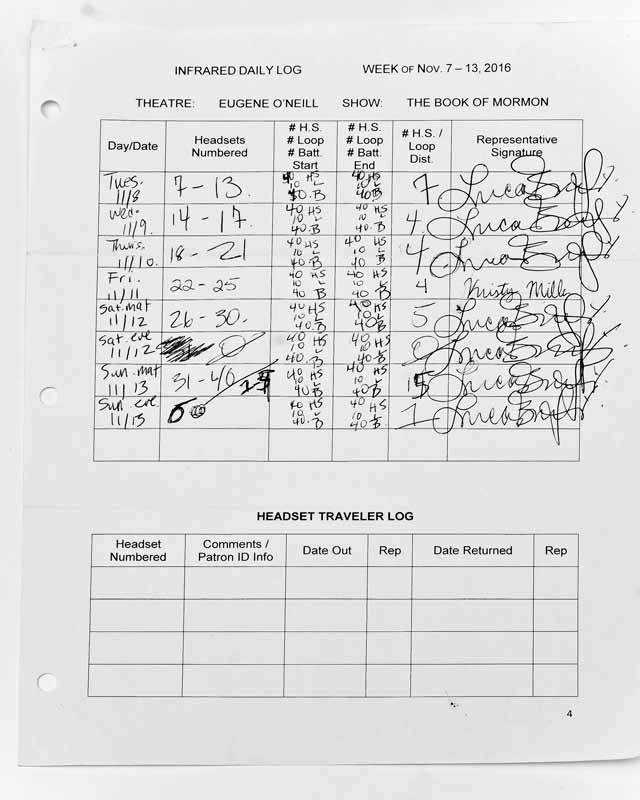 INFRARED DAILY LOG WEEK OF NOV. 7 – 13, 2016
THEATRE: EUGENE O'NEILL SHOW: THE BOOK OF MORMON
Day/Date Headsets Numbered # H.S. # Loop # Batt. Start # H.S. # Loop # Batt. End # H.S. / Loop Dist. Representative Signature
Tues. 11/8 7 - 13 40 HS 10 L 40 B 40 HS 10 L 40 B 7
Wed. 11/9 14 - 17 40 HS 10 L 40 B 40 HS 10 L 40 B 4
Thurs. 11/10 18 - 21 40 HS 10 L 40 B 40 HS 10 L 40 B 4
Fri. 11/11 22 - 25 40 HS 10 L 40 B 40 HS 10 L 40 B 4 Kristy Mills
Sat. mat 11/12 26 - 30 40 HS 10 L 40 B 40 HS 10 L 40 B 5
Sat. eve 11/12 0 40 HS 10 L 40. B 40 HS 10 L 40 B 0
Sun. mat 11/13 31 - 40 40 HS 10 L 40 B 40 HS 10 L 40 B
Sun eve 11/13 40 HS 10 L 40. B 40 HS 10 L 40 B 1
HEADSET TRAVELER LOG
Headset Numbered Comments / Patron ID Info Date Out Rep Date Returned Rep
4